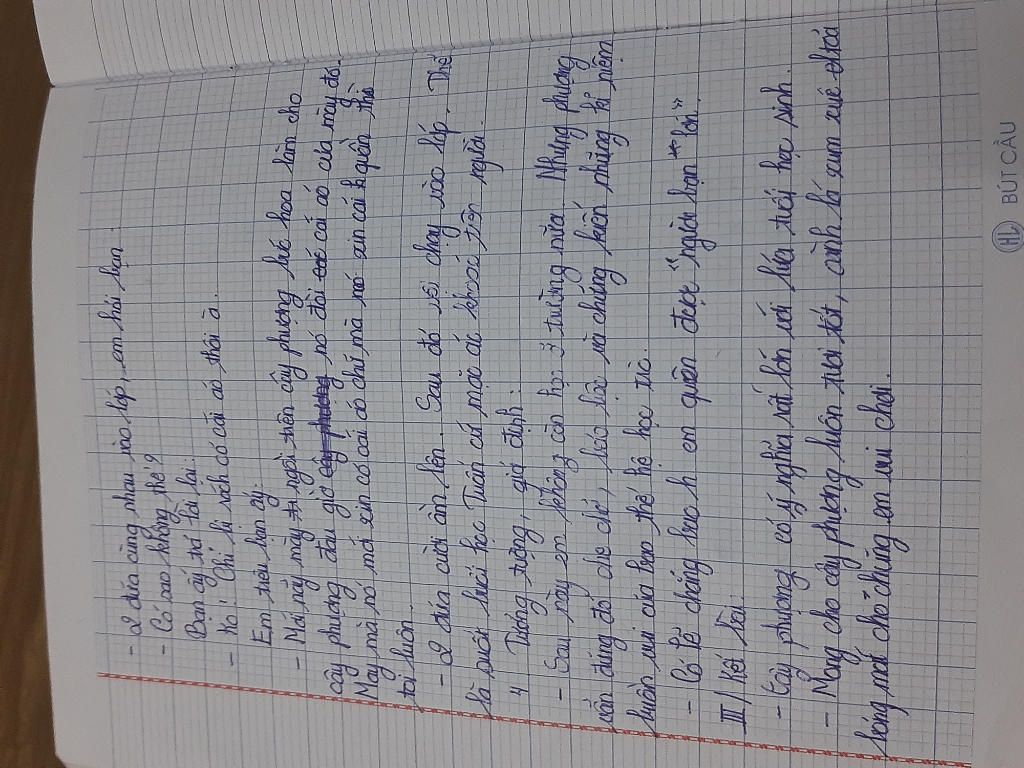 - 2 đứa cùng nhau vào lớp, em hỏi bạn:
- Có sao không thế?
Bạn ấy trả lời lại:
- Ko! Chỉ bị rách có cái áo thôi à.
Em trêu bạn ấy:
- Mới nãy mày ngồi trên cây phượng bức hoa làm cho
cây phượng đau giờ nó đòi cái áo của mày đó.
May mà nó mới xin có cái áo chứ mà nó xin cái quần thì
toi luôn.
- 2 đứa cười ầm lên. Sau đó rồi chạy vào lớp. Thế
là suốt buổi học Tuấn cứ mặc cái áo khoác trên người.
4 Tưởng tượng, giả định:
- Sau này em không còn học ở trường nữa. Nhưng phượng
vẫn đứng đó che chở, bảo bọc và chứng kiến những kỉ niệm
buồn vui của bao thế hệ học trò.
- Có lẽ chẳng bao h em quên được "người bạn lớn".
III/ Kết bài:
- Cây phượng có ý nghĩa rất lớn với lứa tuổi học sinh.
- Mong cho cây phượng luôn tươi tốt, cành lá xum xuê
bóng mát cho chúng em vui chơi.
HL BÚT CẦU